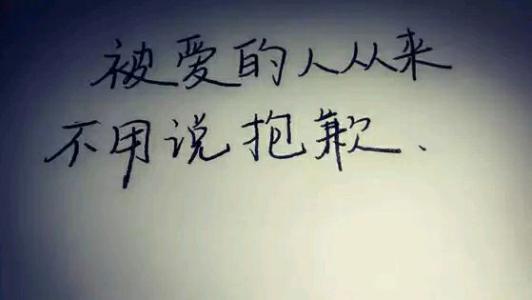 被爱的人从来
不用说抱歉、